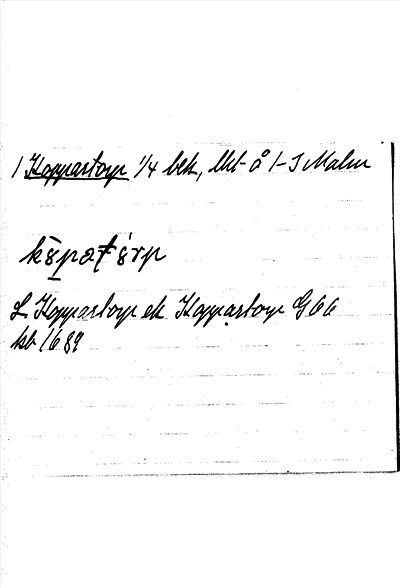 1 Koppartorp 1/4 bek, lht å 1-3 Malm
kopatorp
L Koppartorp ek Koppartorp G 66
kb 1689